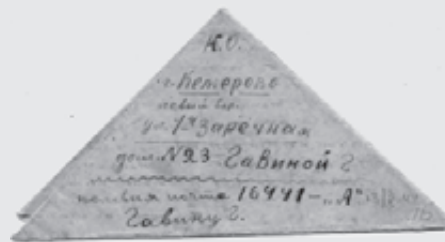 К.О.
г. Кемерово
левый бер.
ул. 1я Заречная
дом. №23 Гавиной Г
полевая почта 16441-„А"
Гавину Г.